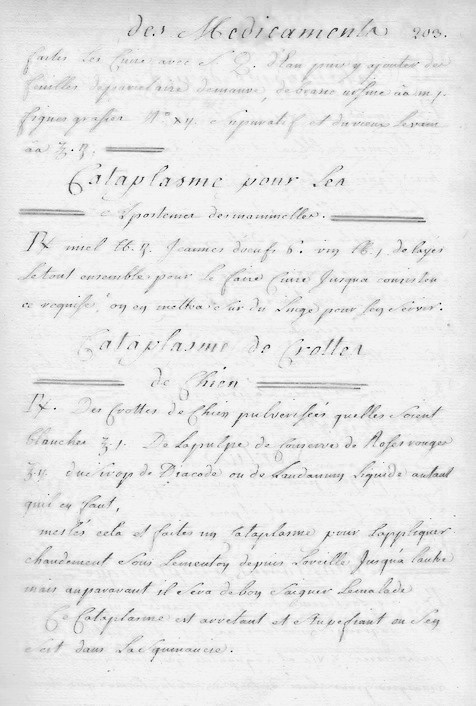 des Medicaments 203.
faites Les Cuire avec S. Q. d'Eau pour y ajouter des
feuilles de parietaire demauve, de branc ursine aa m j
figues grasses N.º xy. et du vieux Levain
aa ℥. ij.
Cataplasme pour Les
apostemes des mammelles.
℞ miel ℔. ij. Jeaunes doeufs 6. vin ℔. j. delayes
Le tout ensemble pour Le faire Cuire Jusqua consisten
ce requise, on en mettra sur du Linge pour sen servir.
Cataplasme de Crottes
de Chien
℞. Des Crottes de Chien pulverisées quelles soient
blanches ℥. j. De Lapulpe de Conserve de Roses rouges
℥. ij. du sirop de Diacode ou de Laudanum Liquide autant
quil en faut,
meslés cela et faites un Cataplasme pour Lappliquer
chaudement sous Lementon depuis Loreille Jusqua Lautre
mais auparavant il sera de bon saigner Lemalade
Ce Cataplasme est arretant et stupefiant on sen
sert dans La squinancie.